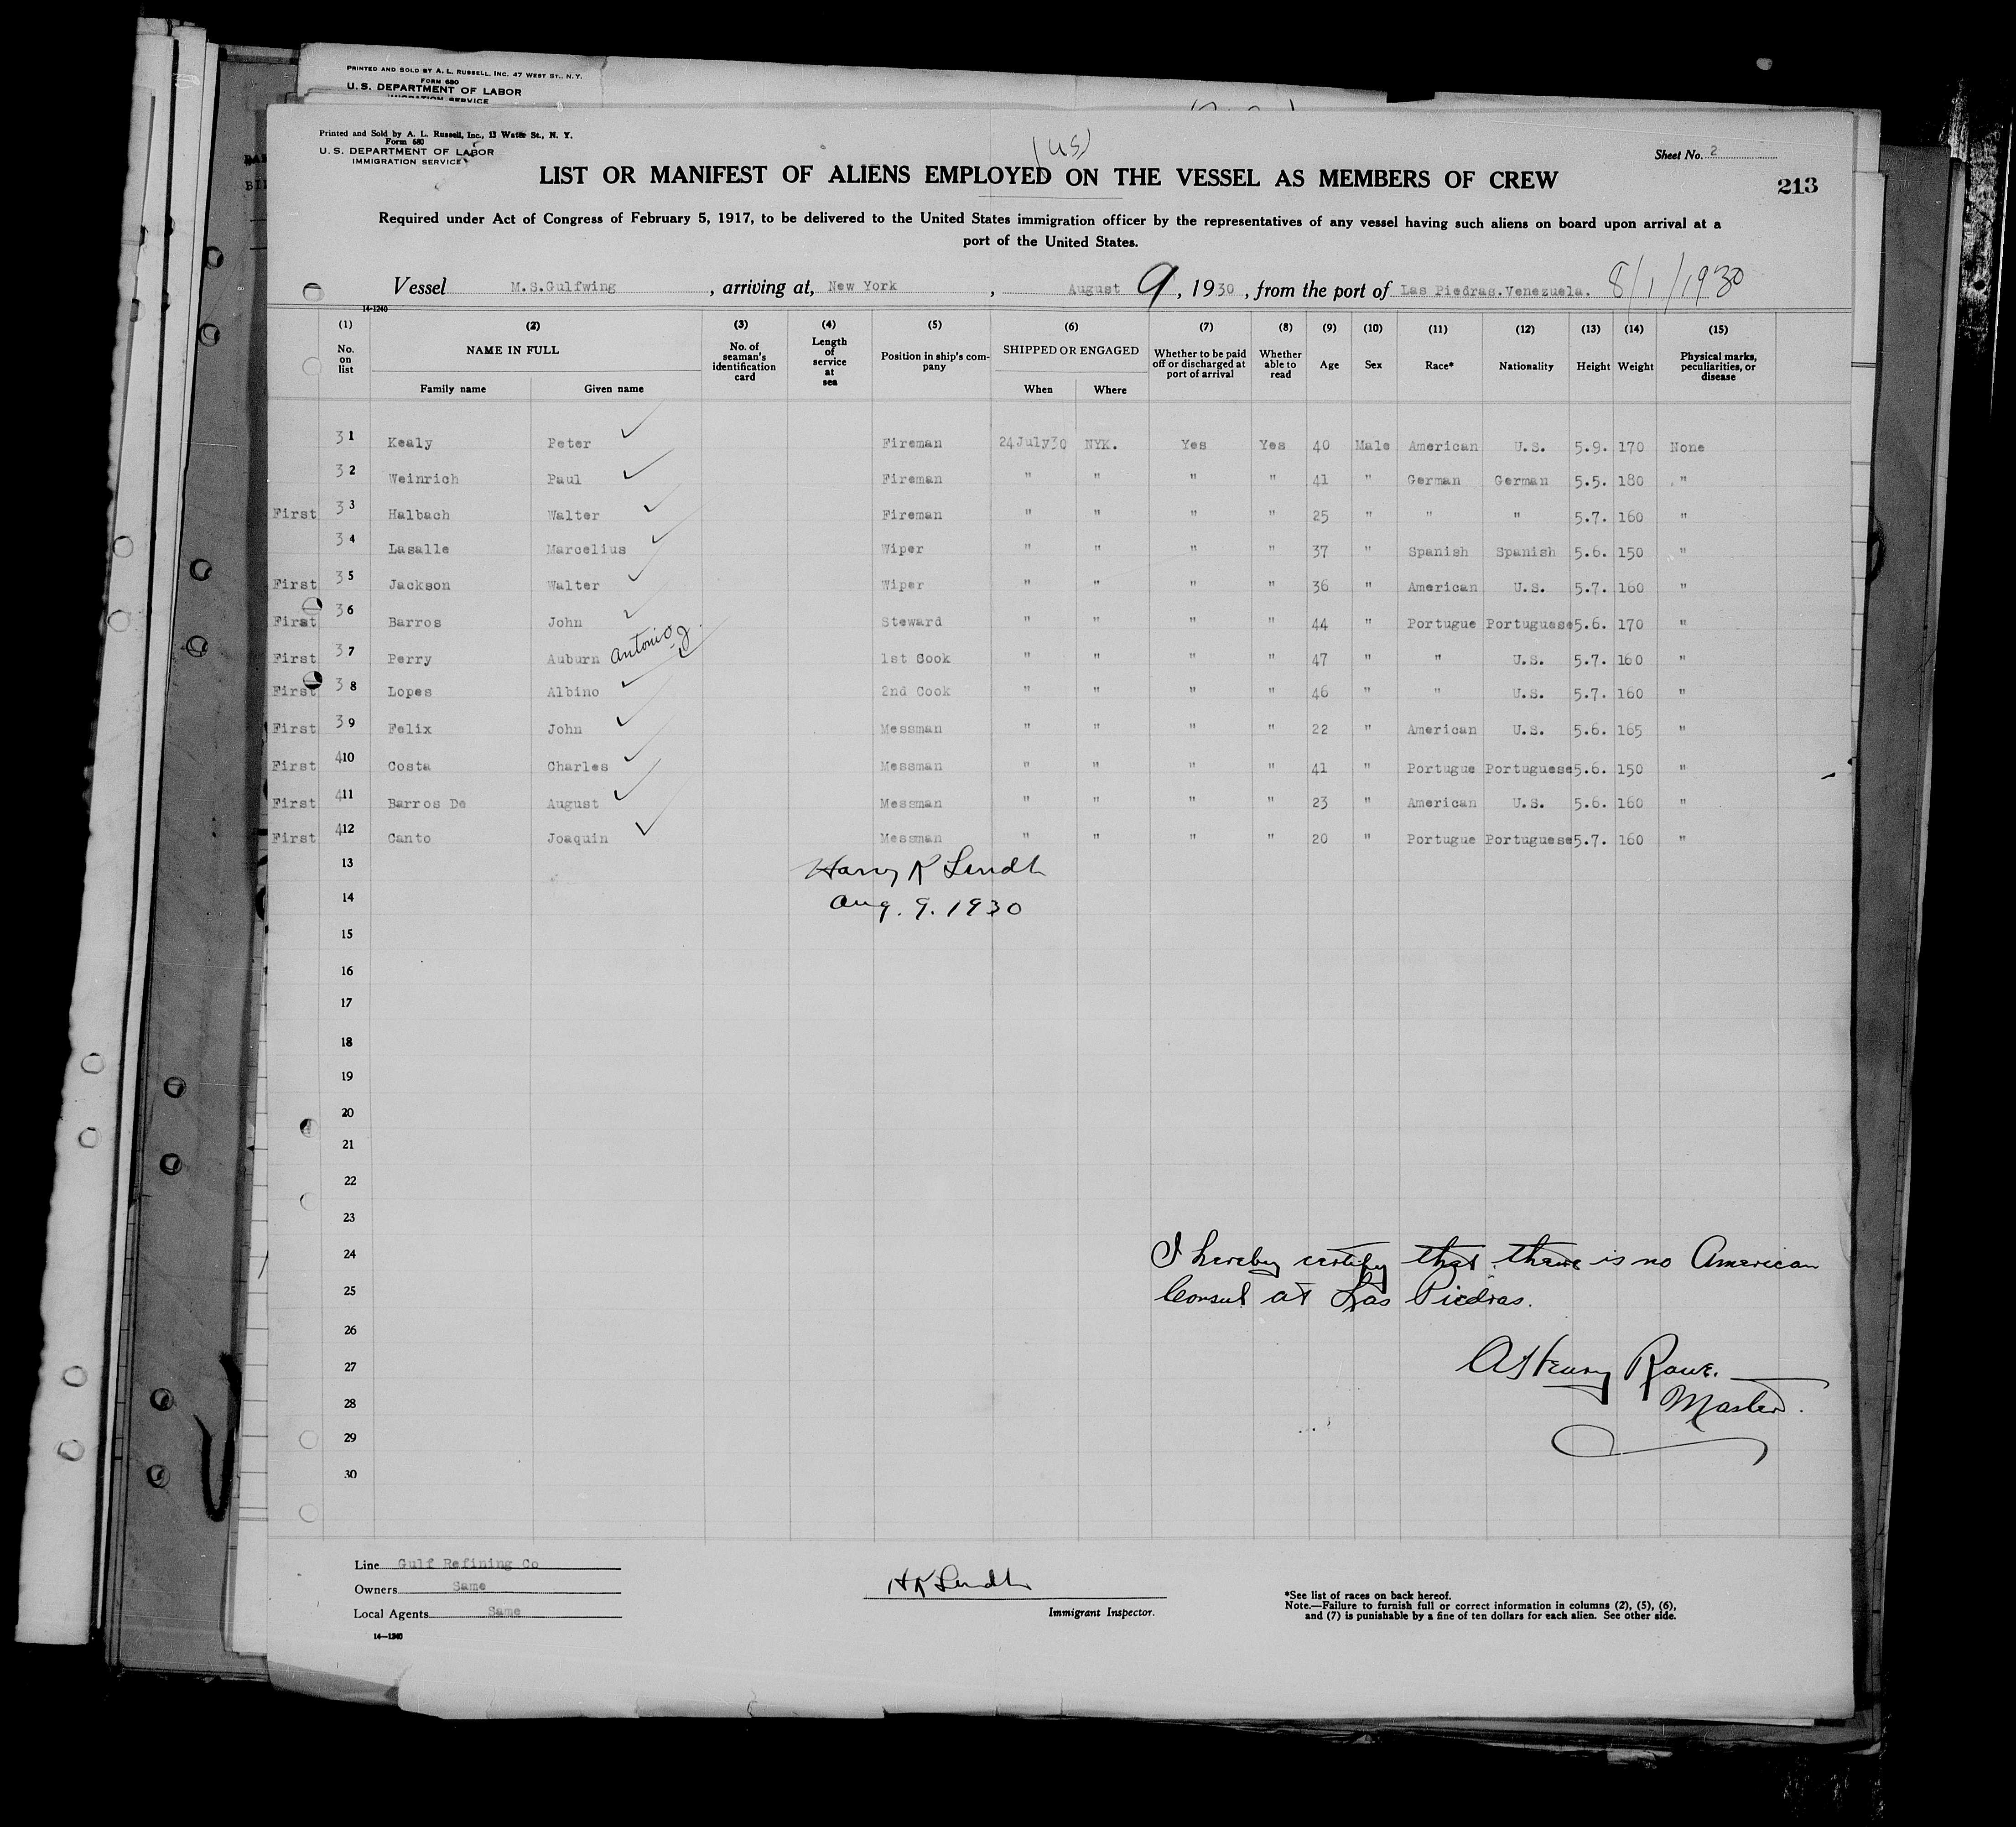 PRINTED AND SOLD BY A. L. RUSSELL, INC. 47 WEST ST., N. Y.
FORM 680
U. S. DEPARTMENT OF LABOR
IMMIGRATION SERVICE
Printed and Sold by A. L. Russell, Inc., 13 Water St., N. Y.
Form 680
U. S. DEPARTMENT OF LABOR
IMMIGRATION SERVICE
(US)
Sheet No. 2
LIST OR MANIFEST OF ALIENS EMPLOYED ON THE VESSEL AS MEMBERS OF CREW
213
Required under Act of Congress of February 5, 1917, to be delivered to the United States immigration officer by the representatives of any vessel having such aliens on board upon arrival at a
port of the United States.
Vessel M.S.Gulfwing, arriving at, New York, August 9, 1930, from the port of Las Piedras.Venezuela. 8/1/1930
14-1240
(1) (2) (3) (4) (5) (6) (7) (8) (9) (10) (11) (12) (13) (14) (15)
No. on list NAME IN FULL No. of seaman's identification card Length of service at sea Position in ship's company SHIPPED OR ENGAGED Whether to be paid off or discharged at port of arrival Whether able to read Age Sex Race* Nationality Height Weight Physical marks, peculiarities, or disease
Family name Given name When Where
31 Kealy Peter Fireman 24July30 NYK. Yes Yes 40 Male American U.S. 5.9. 170 None
32 Weinrich Paul Fireman " " " " 41 " German German 5.5. 180 "
First 33 Halbach Walter Fireman " " " " 25 " " " 5.7. 160 "
34 Lasalle Marcelius Wiper " " " " 37 " Spanish Spanish 5.6. 150 "
First 35 Jackson Walter Wiper " " " " 36 " American U.S. 5.7. 160 "
First 36 Barros John Steward " " " " 44 " Portugue Portuguese 5.6. 170 "
First 37 Perry Auburn Antonio J. 1st Cook " " " " 47 " " U.S. 5.7. 160 "
First 38 Lopes Albino 2nd Cook " " " " 46 " " U.S. 5.7. 160 "
First 39 Felix John Messman " " " " 22 " American U.S. 5.6. 165 "
First 410 Costa Charles Messman " " " " 41 " Portugue Portuguese 5.6. 150 "
First 411 Barros De August Messman " " " " 23 " American U.S. 5.6. 160 "
First 412 Canto Joaquin Messman " " " " 20 " Portugue Portuguese 5.7. 160 "
13 Harry K Lendh
14 Aug. 9. 1930
15
16
17
18
19
20
21
22
23
24 I hereby certify that there is no American
25 Consul at Las Piedras.
26
27 A Henry Rowe.
28 Master.
29
30
Line Gulf Refining Co
Owners Same
Local Agents Same
14—1240
HK Lendh
Immigrant Inspector.
*See list of races on back hereof.
Note.—Failure to furnish full or correct information in columns (2), (5), (6),
and (7) is punishable by a fine of ten dollars for each alien. See other side.